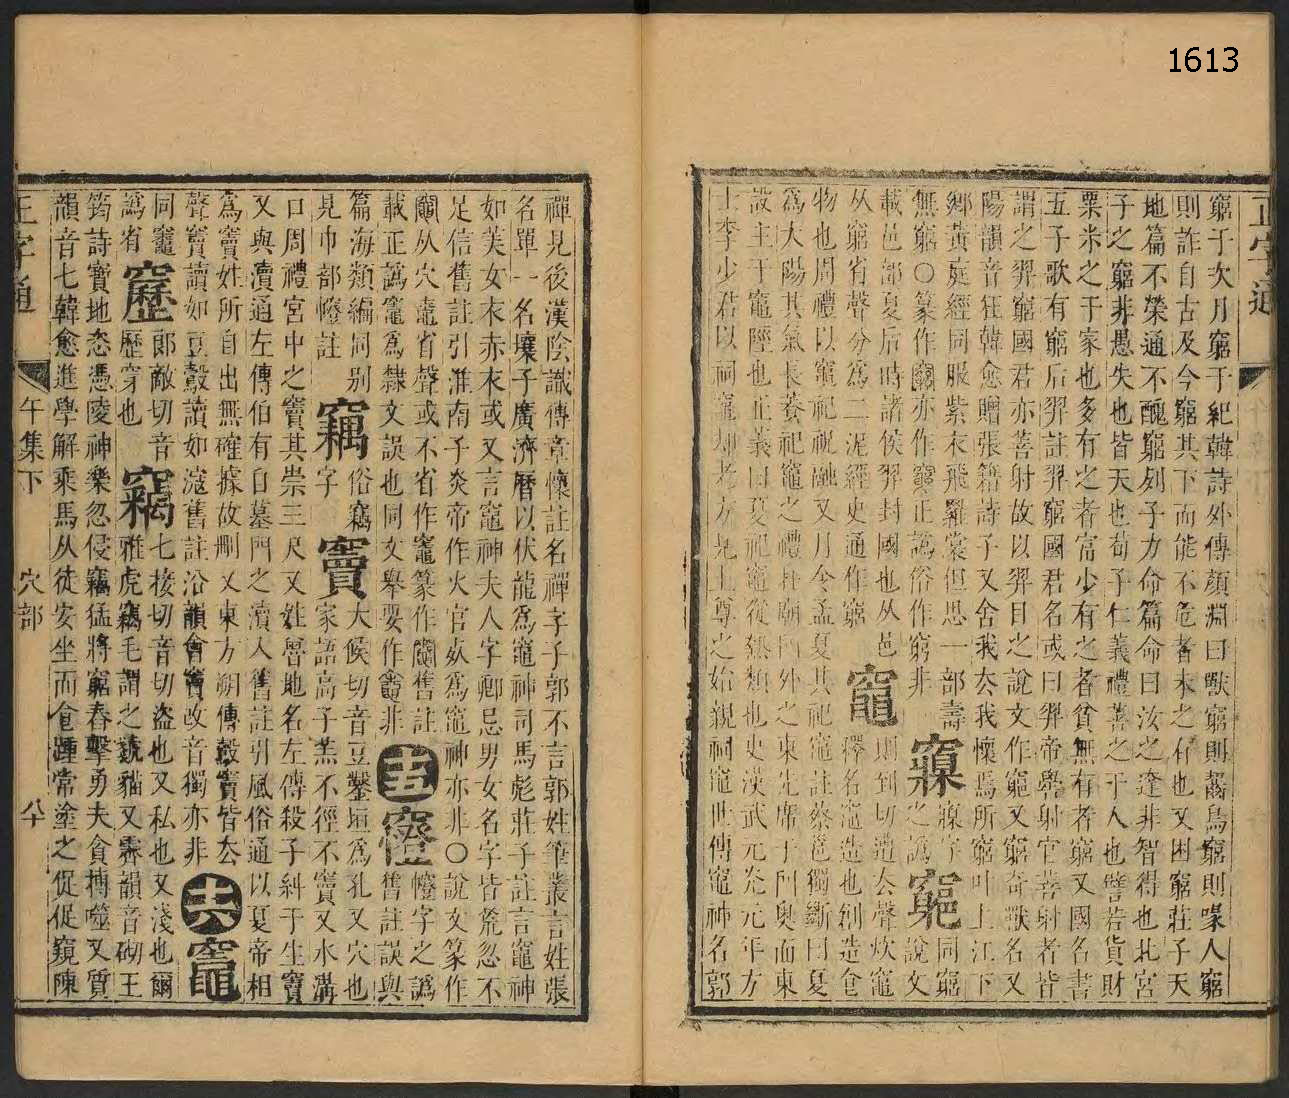 1613
正字通
窮于次月窮于紀韓詩外傳顏淵曰獸窮則齧鳥窮則喙人窮
則詐自古及今窮其下而能不危者未之有也又困窮莊子天
地篇不榮通不醜窮列子力命篇命曰汝之達非智得也北宮
子之窮非愚失也皆天也荀子仁義禮善之于人也譬若貨財
粟米之于家也多有之者富少有之者貧無有者窮又國名書
五子歌有窮后羿註羿窮國君名或曰羿帝嚳射官善射者皆
謂之羿窮國君亦善射故以羿目之說文作竆又窮奇獸名又
陽韻音狂韓愈贈張籍詩子又舍我去我懷焉所窮叶上江下
鄉黃庭經同服紫衣飛羅裳但思一部壽
無窮○篆作竆亦作竆正譌俗作窮非 之譌 說文
載邑部夏后時諸侯羿封國也从邑
从窮省聲分為二泥經史通作窮 竈 則到切遭去聲炊竈
釋名竈造也創造食
物也周禮以竈祠祝融又月令孟夏其祀竈註蔡邕獨斷曰夏
為大陽其氣長養祀竈之禮在廟門外之東先席于門奧而東
設主于竈陘也正義曰夏祀竈從熱類也史漢武元光元年方
士李少君以祠竈却老方見上尊之始親祠竈世傳竈神名郭
禪見後漢陰識傳章懷註名禪字子郭不言郭姓筆叢言姓張
名單一名壤子廣濟曆以伏龍為竈神司馬彪莊子註言竈神
如美女衣赤衣或又言竈神夫人字卿忌男女名字皆荒忽不
足信舊註引淮南子炎帝作火官故為竈神亦非○說文篆作
竈从穴鼀省聲或不省作竈篆作竈舊註
載正譌竈為隸文誤也同文舉要作竈非 十五 㡧字之譌
舊註誤與
篇海類編同别
見巾部㡧註 竊 俗竊
字 竇 大候切音豆鑿垣為孔又穴也
家語高子羔不徑不竇又水溝
口周禮宮中之竇其崇三尺又姓曾地名左傳殺子糾于生竇
又與瀆通左傳伯有自墓門之瀆入舊註引風俗通以夏帝相
為竇姓所自出無確據故刪又東方朔傳聲竇皆去
聲竇讀如豆讀如寇舊註沿韻會竇改音獨亦非 十六 竈
同竈
譌省 郎敵切音
歷穿也 竊 七接切音切盜也又私也又淺也爾
雅虎竊毛謂之虦貓又霽韻音砌王
筠詩寶地恣憑陵神樂忽侵竊猛將窮舂擊勇夫貪搏噬又質
韻音七韓愈進學解乘馬从徒安坐而食踵常塗之促促窺陳
正字通 午集下 穴部